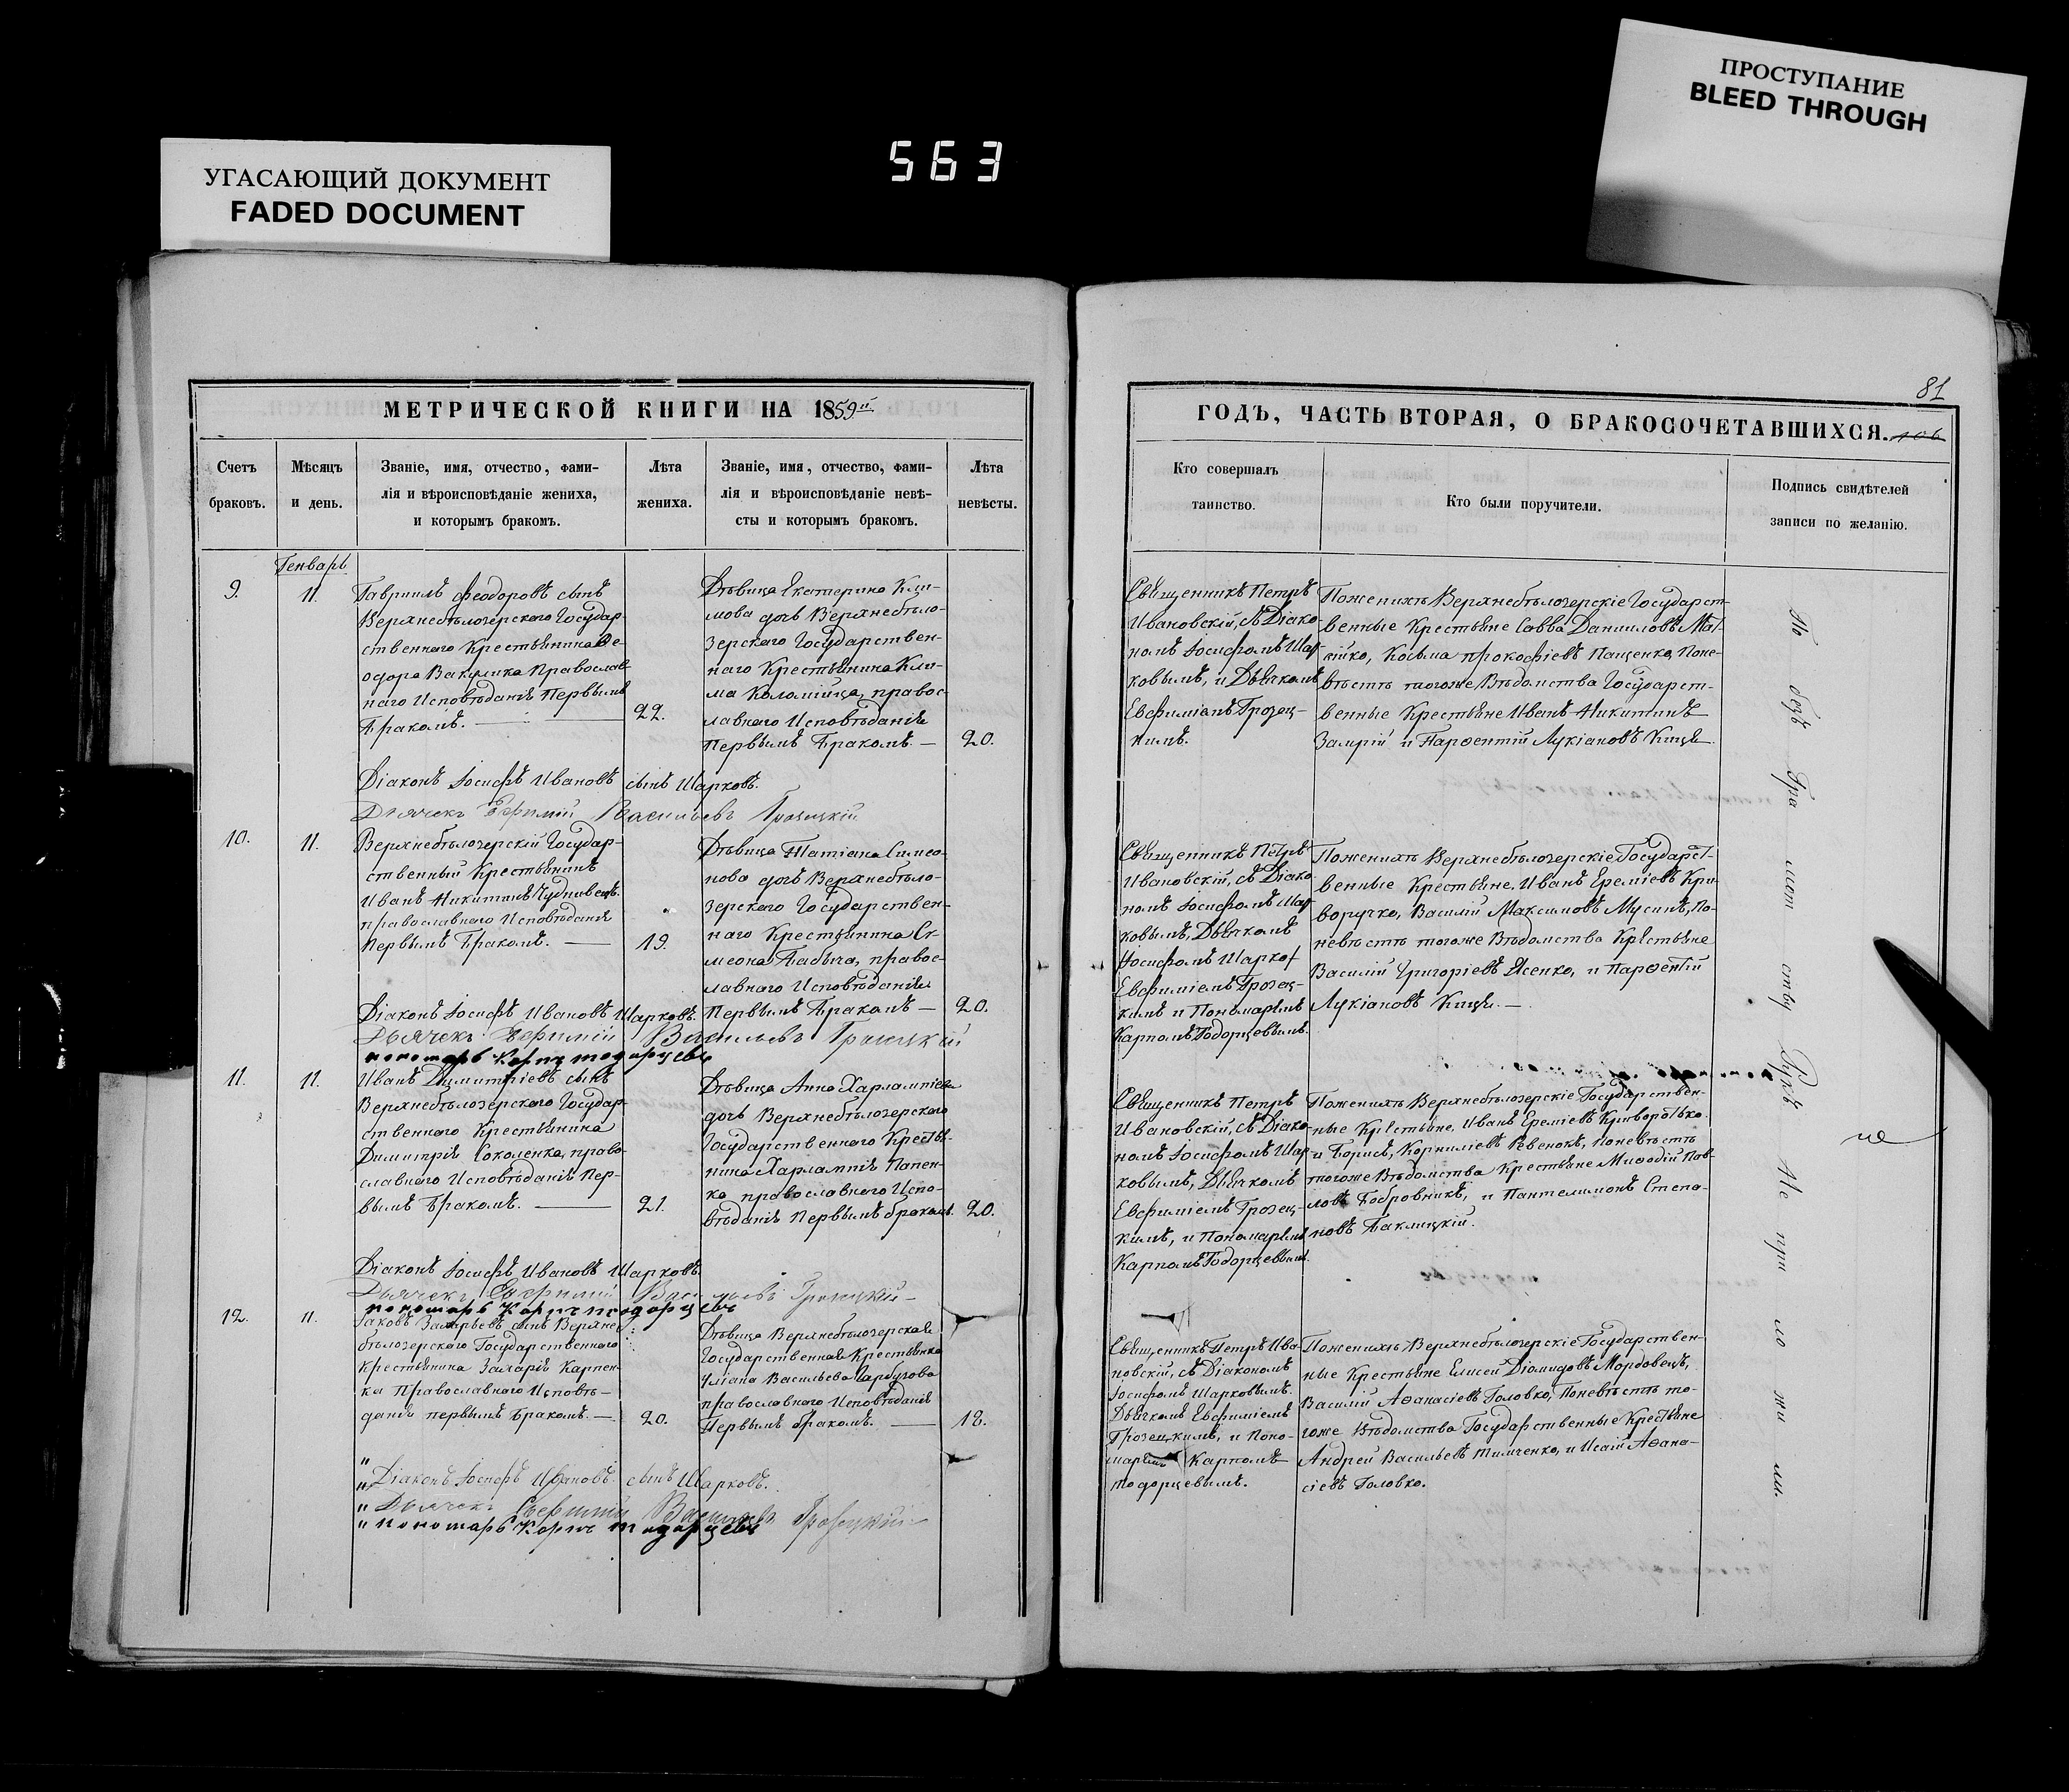 УГАСАЮЩИЙ ДОКУМЕНТ
FADED DOCUMENT
563
ПРОСТУПАНИЕ
BLEED THROUGH
МЕТРИЧЕСКОЙ КНИГИ НА 1859й
Счетъ
браковъ.
Мѣсяцъ
и день.
Званіе, имя, отчество, фами-
лія и вѣроисповѣданіе жениха,
и которымъ бракомъ.
Лѣта
жениха.
Званіе, имя, отчество, фами-
лія и вѣроисповѣданіе невѣ-
сты и которымъ бракомъ.
Лѣта
невѣсты.
Генварь
9.
11.
Гавриилъ Феодоровъ сынъ
Верхнебѣлозерского Государ-
ственнаго Крестьянина Ѳе-
одора Вакулика Православ-
наго Исповѣданія Первымъ
Бракомъ.
22.
Дѣвица Екатерина Кли-
мова дочь Верхнебѣло-
зерскаго Государствен-
наго Крестьянина Кли-
ма Коломійца, правос-
лавнаго Исповѣданія
Первымъ Бракомъ. —
20.
Діаконъ Іосифъ Ивановъ сынъ Шарковъ.
Дьячекъ Ефимій Васильевъ Грозецкій
10.
11.
Верхнебѣлозерскій Государ-
ственный Крестьянинъ
Иванъ Никитинъ Чудновецъ.
православнаго Исповѣданія
Первымъ Бракомъ. —
19.
Дѣвица Татіана Симео-
нова дочь Верхнебѣло-
зерскаго Государствен-
наго Крестьянина Си-
меона Бабыча, правос-
лавнаго Исповѣданія
Первымъ Бракомъ —
20.
Діаконъ Іосифъ Ивановъ Шарковъ.
Дьячекъ Ефимій Васильевъ Грозецкій
пономарь Карпъ тодорцевъ
11.
11.
Иванъ Димитріевъ сынъ
Верхнебѣлозерскаго Государ-
ственнаго Крестьянина
Димитрія Соколенка, право-
славнаго Исповѣданія Пер-
вымъ Бракомъ. —
21.
Дѣвица Анна Харлампіева
дочь Верхнебѣлозерскаго
Государственнаго Крестья-
нина Харлампія Папен-
ка православнаго Испо-
вѣданія Первымъ бракомъ.
20.
Діаконъ Іосифъ Ивановъ Шарковъ.
Дьячекъ Ефимій Васильевъ Грозецкій
пономарь Карпъ тодорцевъ
12.
11.
Іаковъ Захарьевъ сынъ Верхне-
бѣлозерскаго Государственнаго
крестьянина Захарія Карпен-
ка Православнаго Исповѣ-
данія первымъ Бракомъ. —
20.
Дѣвица Верхнебѣлозерская
Государственная Крестьянка
Уліана Васильева Гарбузова
православнаго Исповѣданія
Первымъ бракомъ. —
18.
" Діаконъ Іосифъ Ивановъ сынъ Шарковъ.
" Дьячекъ Ефимій Васильевъ Грозецкій
" пономарь Карпъ тодорцевъ
81
ГОДЪ, ЧАСТЬ ВТОРАЯ, О БРАКОСОЧЕТАВШИХСЯ.
106
Кто совершалъ
таинство.
Кто были поручители.
Подпись свидѣтелей
записи по желанію.
Священникъ Петръ
Ивановскій, съ Діако-
номъ Іосифомъ Шар-
ковымъ, и Дьячкомъ
Евфиміемъ Грозец-
кимъ.
Поженихѣ Верхнебѣлозерскіе Государст-
венные Крестьяне Савва Данииловъ Мат-
війко, Косьма прокофіевъ Пащенко, Поне-
вѣстѣ тогоже Вѣдомства Государст-
венные Крестьяне Иванъ Никитинъ
и Парѳентій Лукіановъ Кицы.
Священникъ Петръ
Ивановскій, съ Діако-
номъ Іосифомъ Шар-
ковымъ, Дьячкомъ
Іосифомъ Шаркоf
Евфиміемъ Грозец-
кимъ и Пономаремъ
Карпомъ Тодорцевымъ.
Поженихѣ Верхнебѣлозерскіе Государст-
венные Крестьяне, Иванъ Ереміевъ Кри-
воручко, Василій Максимовъ Мусинъ, По-
невѣстѣ тогоже Вѣдомства Крестьяне
Василій Григоріевъ Ясенко, и Парѳентій
Лукіановъ Кицы. —
Священникъ Петръ
Ивановскій, съ Діако-
номъ Іосифомъ Шар-
ковымъ, Дьячкомъ
Евфиміемъ Грозец-
кимъ, и Пономаремъ
Карпомъ Тодорцевымъ.
Поженихѣ Верхнебѣлозерскіе Государствен-
ные Крестьяне, Иванъ Ереміевъ Криворотько
и Борисъ, Корниліевъ Ревенокъ, Поневѣстѣ
тогоже Вѣдомства Крестьяне Миѳодій Пав-
ловъ Бобровникъ, и Пантелимонъ Степа-
новъ Баклицкій.
Священникъ Петръ Ива-
новскій, съ Діакономъ
Іосифомъ Шарковымъ.
Дьячкомъ Евфиміемъ
Грозецкимъ, и Поно-
маремъ Карпомъ
тодорцевымъ.
Поженихѣ Верхнебѣлозерскіе Государствен-
ные Крестьяне Елисей Діомидовъ Мордовецъ,
Василій Аѳанасіевъ Головко, Поневѣстѣ то-
гоже Вѣдомства Государственные Крестьяне
Андрей Васильевъ Тимченко, и Исаій Аѳана-
сіевъ Головко.
По безъ Гра мот ству Рукъ Не при ло жи ли.